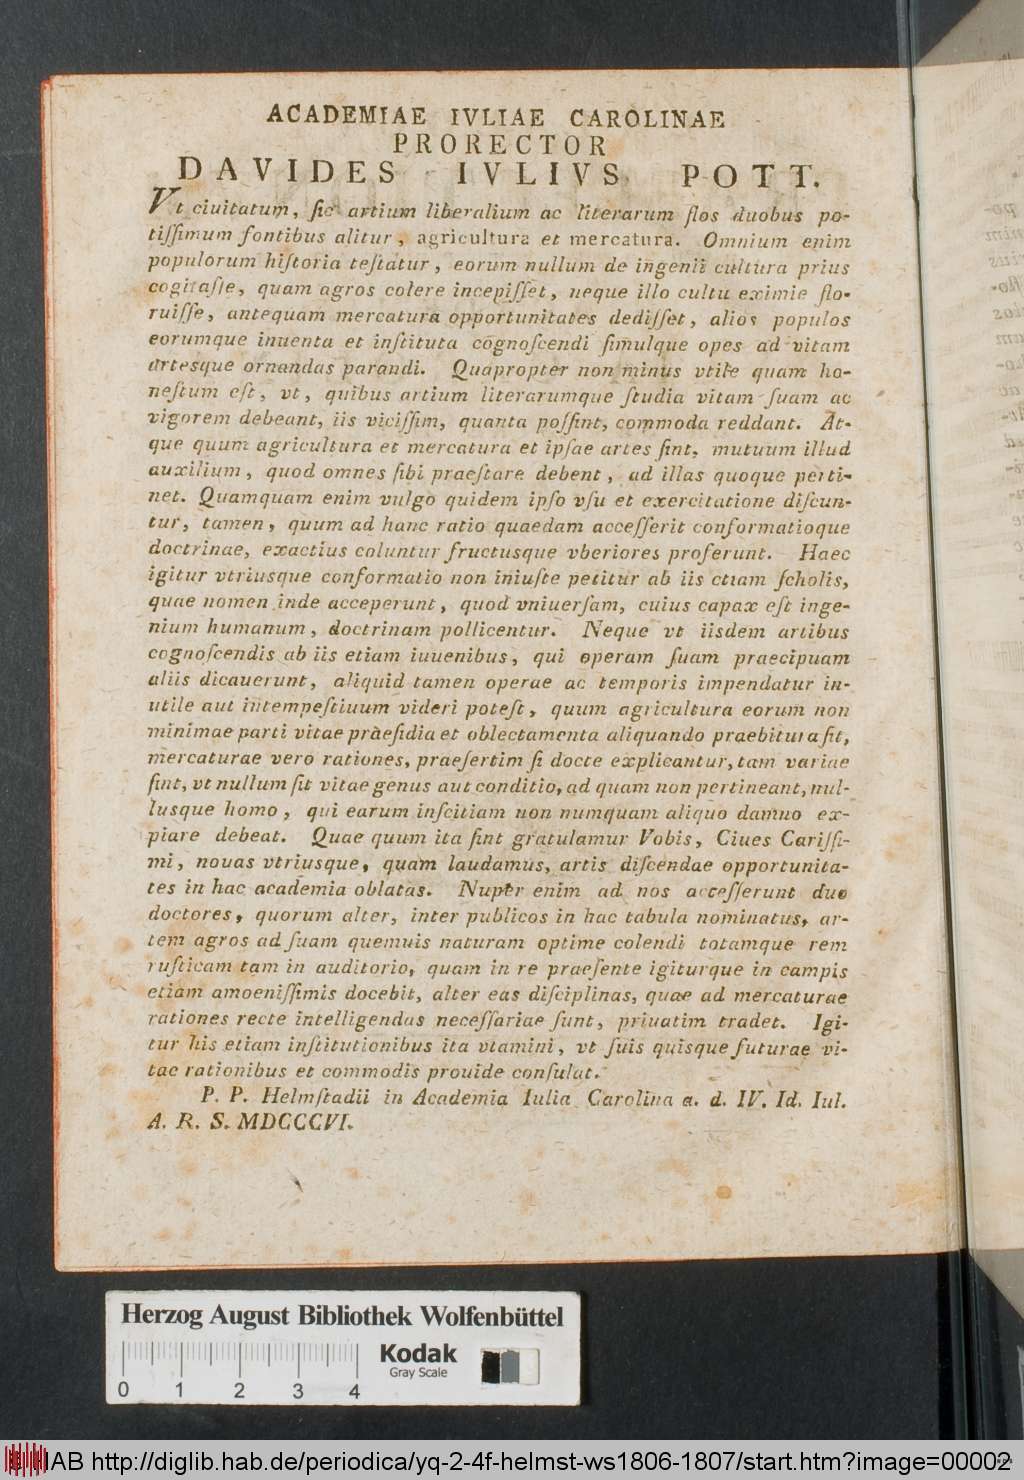 ACADEMIAE IVLIAE CAROLINAE
PRORECTOR
DAVIDES IVLIVS POTT.
Vt ciuitatum, ſic artium liberalium ac literarum flos duobus po-
tiſſimum fontibus alitur, agricultura et mercatura. Omnium enim
populorum hiſtoria teſtatur, eorum nullum de ingenii cultura prius
cogitaſſe, quam agros colere incepiſſet, neque illo cultu eximie flo-
ruiſſe, antequam mercatura opportunitates dediſſet, alios populos
eorumque inuenta et inſtituta cognoſcendi ſimulque opes ad vitam
artesque ornandas parandi. Quapropter non minus vtile quam ho-
neſtum eſt, vt, quibus artium literarumque ſtudia vitam ſuam ac
vigorem debeant, iis viciſſim, quanta poſſint, commoda reddant. At-
que quum agricultura et mercatura et ipſae artes ſint, mutuum illud
auxilium, quod omnes ſibi praeſtare debent, ad illas quoque perti-
net. Quamquam enim vulgo quidem ipſo vſu et exercitatione diſcun-
tur, tamen, quum ad hanc ratio quaedam acceſſerit conformatioque
doctrinae, exactius coluntur fructusque vberiores proferunt. Haec
igitur vtriusque conformatio non iniuſte petitur ab iis etiam ſcholis,
quae nomen inde acceperunt, quod vniuerſam, cuius capax eſt inge-
nium humanum, doctrinam pollicentur. Neque vt iisdem artibus
cognoſcendis ab iis etiam iuuenibus, qui operam ſuam praecipuam
aliis dicauerunt, aliquid tamen operae ac temporis impendatur in-
utile aut intempeſtiuum videri poteſt, quum agricultura eorum non
minimae parti vitae praeſidia et oblectamenta aliquando praebitura ſit,
mercaturae vero rationes, praeſertim ſi docte explicantur, tam variae
ſint, vt nullum ſit vitae genus aut conditio, ad quam non pertineant, nul-
lusque homo, qui earum inſcitiam non numquam aliquo damno ex-
piare debeat. Quae quum ita ſint gratulamur Vobis, Ciues Cariſſi-
mi, nouas vtriusque, quam laudamus, artis diſcendae opportunita-
tes in hac academia oblatas. Nuper enim ad nos acceſſerunt duo
doctores, quorum alter, inter publicos in hac tabula nominatus, ar-
tem agros ad ſuam quemuis naturam optime colendi totamque rem
ruſticam tam in auditorio, quam in re praeſente igiturque in campis
etiam amoeniſſimis docebit, alter eas diſciplinas, quae ad mercaturae
rationes recte intelligendas neceſſariae ſunt, priuatim tradet. Igi-
tur his etiam inſtitutionibus ita vtamini, vt ſuis quisque futurae vi-
tae rationibus et commodis prouide conſulat.
P. P. Helmſtadii in Academia Iulia Carolina a. d. IV. Id. Iul.
A. R. S. MDCCCVI.
Herzog August Bibliothek Wolfenbüttel
Kodak
Gray Scale
0 1 2 3 4
HAB http://diglib.hab.de/periodica/yq-2-4f-helmst-ws1806-1807/start.htm?image=00002